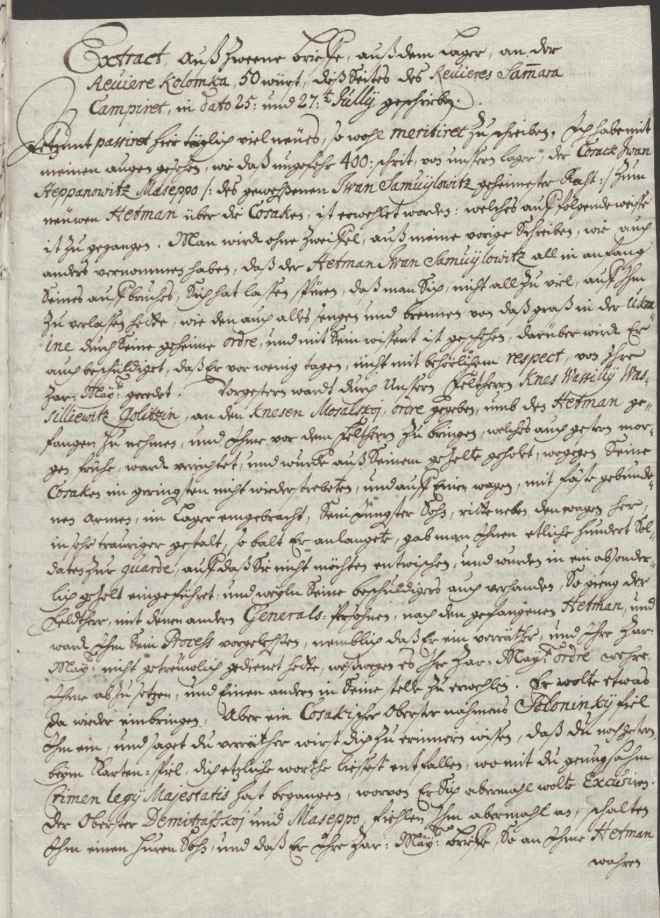 Extract, auß zweene brieffe, auß dem Lager, an der
Reviere Kolomka, 50 würst, disseites des Revieres Sam̅ara
Campiret, in dato 25: und 27:t Jullij geschrieben.
Jetzunt passiret hier täglich viel neues, so wohl meritiret zu schreiben. Ich habe mit
meinen augen gesehen, wie daß ungefehr 400: schrit, von unserm lager, der Cosack Iwan
Heppanowitz Maseppo /: des gewesenen Iwan Samuijlowitz geheimester Raht :/ zum
neuwen Hetman über die Cosaken, ist erwehlet worden: welches auff folgende weise
ist zu gegangen. Man wird ohne zweiffel, auß meine vorige schreiben, wie auch
anders vernommen haben, daß der Hetman Iwan Samuijlowitz all in anfang
seines auffbruches, sich hat lassen spüren, daß man sich, nicht all zu viel, auff Ihm
zu verlassen hette, wie den auch alles sengen und brennen von daß graß in der Ukra-
ine durch seine geheime ordre, und mit sein wissent ist geschehen, darüber wird Er
auch beschuldiget, daß Er vor wenig tagen, nicht mit behörlichem respect, von Ihre
Zar: Maij: geredet. Vorgestern wardt durch Unsern Feltherrn Knes Wassilij Was-
silliewitz Golitzin, an den Knesen Mosalskoj, ordre gegeben, umb den Hetman ge-
fangen zu nehmen, und Ihme vor dem Feltherrn zu bringen, welches auch gestern mor-
gen frühe, ward verrichtet, und wurde auß seinem gezelte geholt, wogegen seine
Cosaken im geringsten nicht wiederstrebeten, und auff einen wagen, mit feste gebunde-
nen armen, im Lager eingebracht, sein jüngster Sohn, ritte neben den wagen her,
in sehr trauriger gestalt, so balt Er anlangete, gab man Ihnen etliche hundert Sol-
daten zur guarde, auff daß sie nicht möchten entwischen, und wurden in ein absonder-
lich gezelt eingeführet, und weijln seine beschuldigers auch verhanden, so gieng der
Feldtherr, mit denen andern Generals-Persohnen, nach den gefangenen Hetman, und
ward Ihm sein Process vorgelesen, nemblich daß Er ein verrähter, und Ihre Zar:
Maij: nicht getreuwlich gedienet hette, weßwegen es Ihr Zar: Maij: ordre wehre,
Ihme abzusetzen, und einen andern in seine stelle zu erwehlen. Er wolte etwas
da wieder einbringen, Aber ein Cosakischer Oberster nahmens Soloninkij fiel
Ihm ein, und saget du verrähter wirst dich zu erinnern wissen, daß du noch gestern
beijm Karten-spiel, dich etzliche worthe liessest entfallen, wo mit du genugsahm
Crimen lesij Majestatis hat begangen, worvon Er sich abermahl wolte Excusiren.
Der Oberster Demitrasskoj und Maseppo, fiehlen Ihm abermahl an, schalten
Ihm einen huren Sohn, und daß Er Ihre Zar: Maij: brieffe, so an Ihme Hetman
wahren